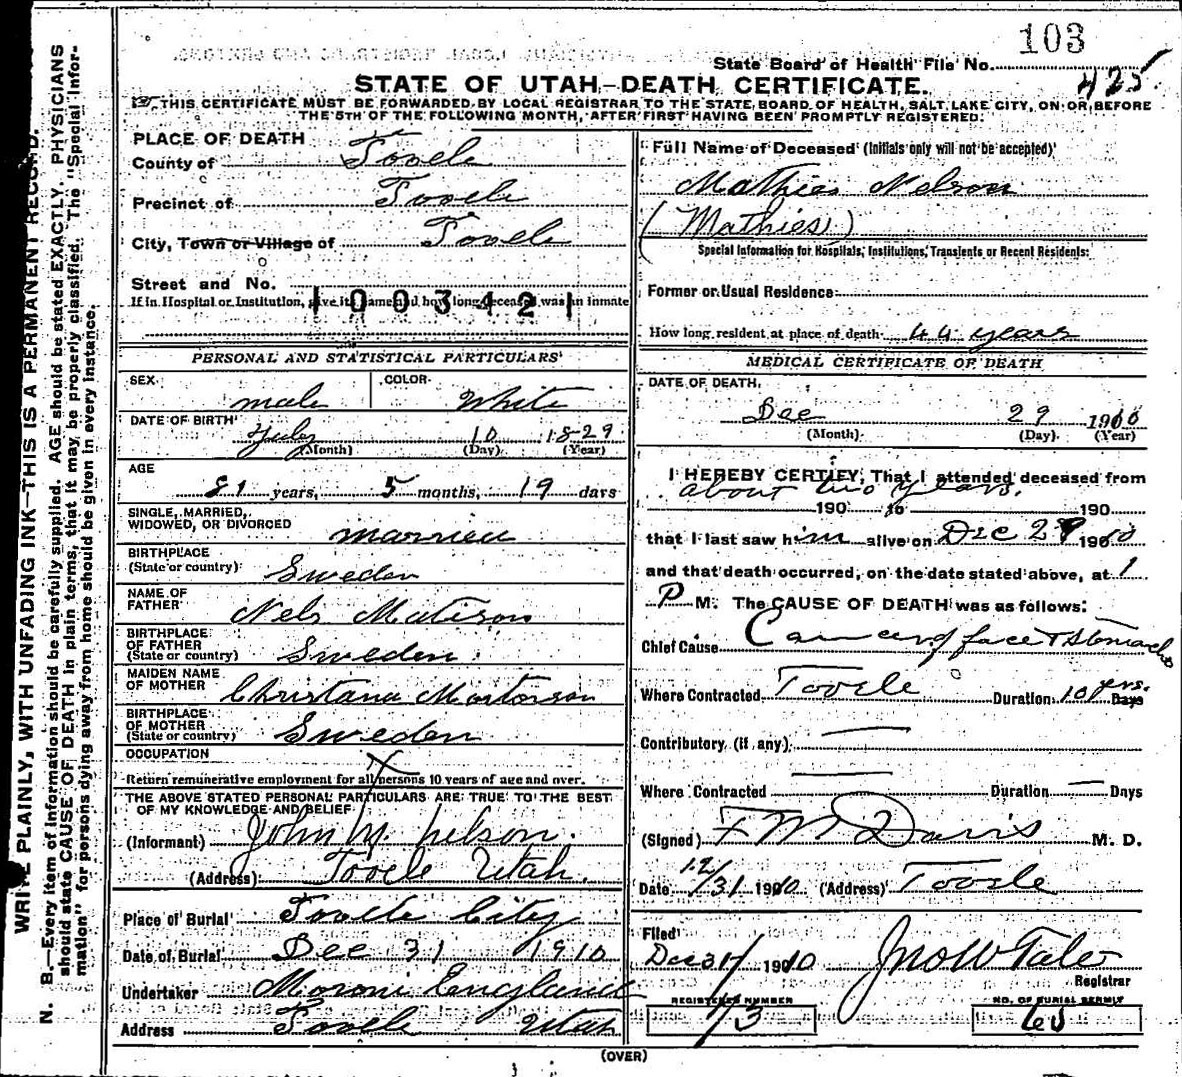 103
State Board of Health File No. 425
STATE OF UTAH—DEATH CERTIFICATE.
THIS CERTIFICATE MUST BE FORWARDED BY LOCAL REGISTRAR TO THE STATE BOARD OF HEALTH, SALT LAKE CITY, ON OR BEFORE
THE 5TH OF THE FOLLOWING MONTH, AFTER FIRST HAVING BEEN PROMPTLY REGISTERED.
PLACE OF DEATH
County of Tooele
Precinct of Tooele
City, Town or Village of Tooele
Street and No.
If in Hospital or Institution, give its name and how long deceased was an inmate
1003421
PERSONAL AND STATISTICAL PARTICULARS
SEX male COLOR White
DATE OF BIRTH July 10 1829
(Month) (Day) (Year)
AGE 81 years, 5 months, 19 days
SINGLE, MARRIED,
WIDOWED, OR DIVORCED married
BIRTHPLACE
(State or country) Sweden
NAME OF
FATHER Nels Matison
BIRTHPLACE
OF FATHER
(State or country) Sweden
MAIDEN NAME
OF MOTHER Christana Mortorson
BIRTHPLACE
OF MOTHER
(State or country) Sweden
OCCUPATION
Return remunerative employment for all persons 10 years of age and over.
THE ABOVE STATED PERSONAL PARTICULARS ARE TRUE TO THE BEST
OF MY KNOWLEDGE AND BELIEF
(Informant) John M. Nelson.
(Address) Tooele Utah.
Place of Burial Tooele City
Date of Burial Dec 31 1910
Undertaker Moroni England
Address Tooele Utah
Full Name of Deceased (Initials only will not be accepted)
Mathies Nelson
(Mathies)
Special Information for Hospitals, Institutions, Transients or Recent Residents:
Former or Usual Residence
How long resident at place of death 44 years
MEDICAL CERTIFICATE OF DEATH
DATE OF DEATH,
Dec 29 1910
(Month) (Day) (Year)
I HEREBY CERTIFY, That I attended deceased from
about two years.
190 to 190
that I last saw him alive on Dec 29 1910
and that death occurred, on the date stated above, at 1
P M. The CAUSE OF DEATH was as follows:
Chief Cause Cancer of face & stomach
Where Contracted Tooele Duration 10 yrs. Days
Contributory (if any)
Where Contracted Duration — Days
(Signed) F M Davis M. D.
Date 12/31 1910 (Address) Tooele
Filed
Dec 31 1910 Jno W Tate
Registrar
REGISTERED NUMBER NO. OF BURIAL PERMIT
73
(OVER)
WRITE PLAINLY, WITH UNFADING INK—THIS IS A PERMANENT RECORD.
N. B.—Every item of information should be carefully supplied. AGE should be stated EXACTLY. PHYSICIANS
should state CAUSE OF DEATH in plain terms, that it may be properly classified. The "Special Infor-
mation" for persons dying away from home should be given in every instance.